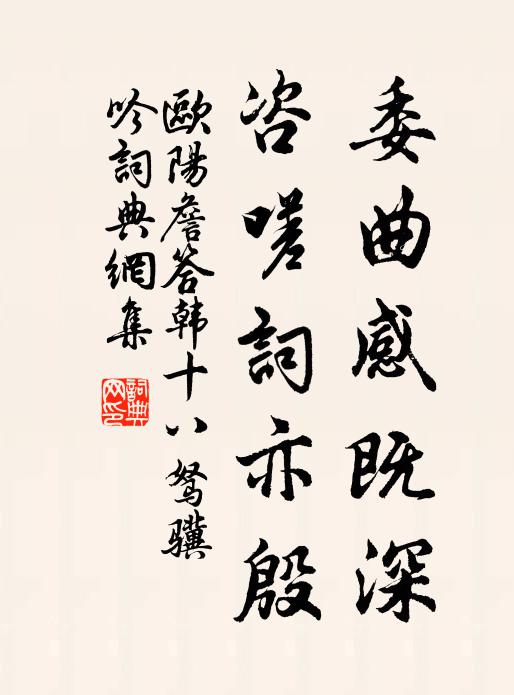 委曲感既深
咨嗟詞亦殷
歐陽詹答韩十八駑驥
吟詞典網集
詞典
网印